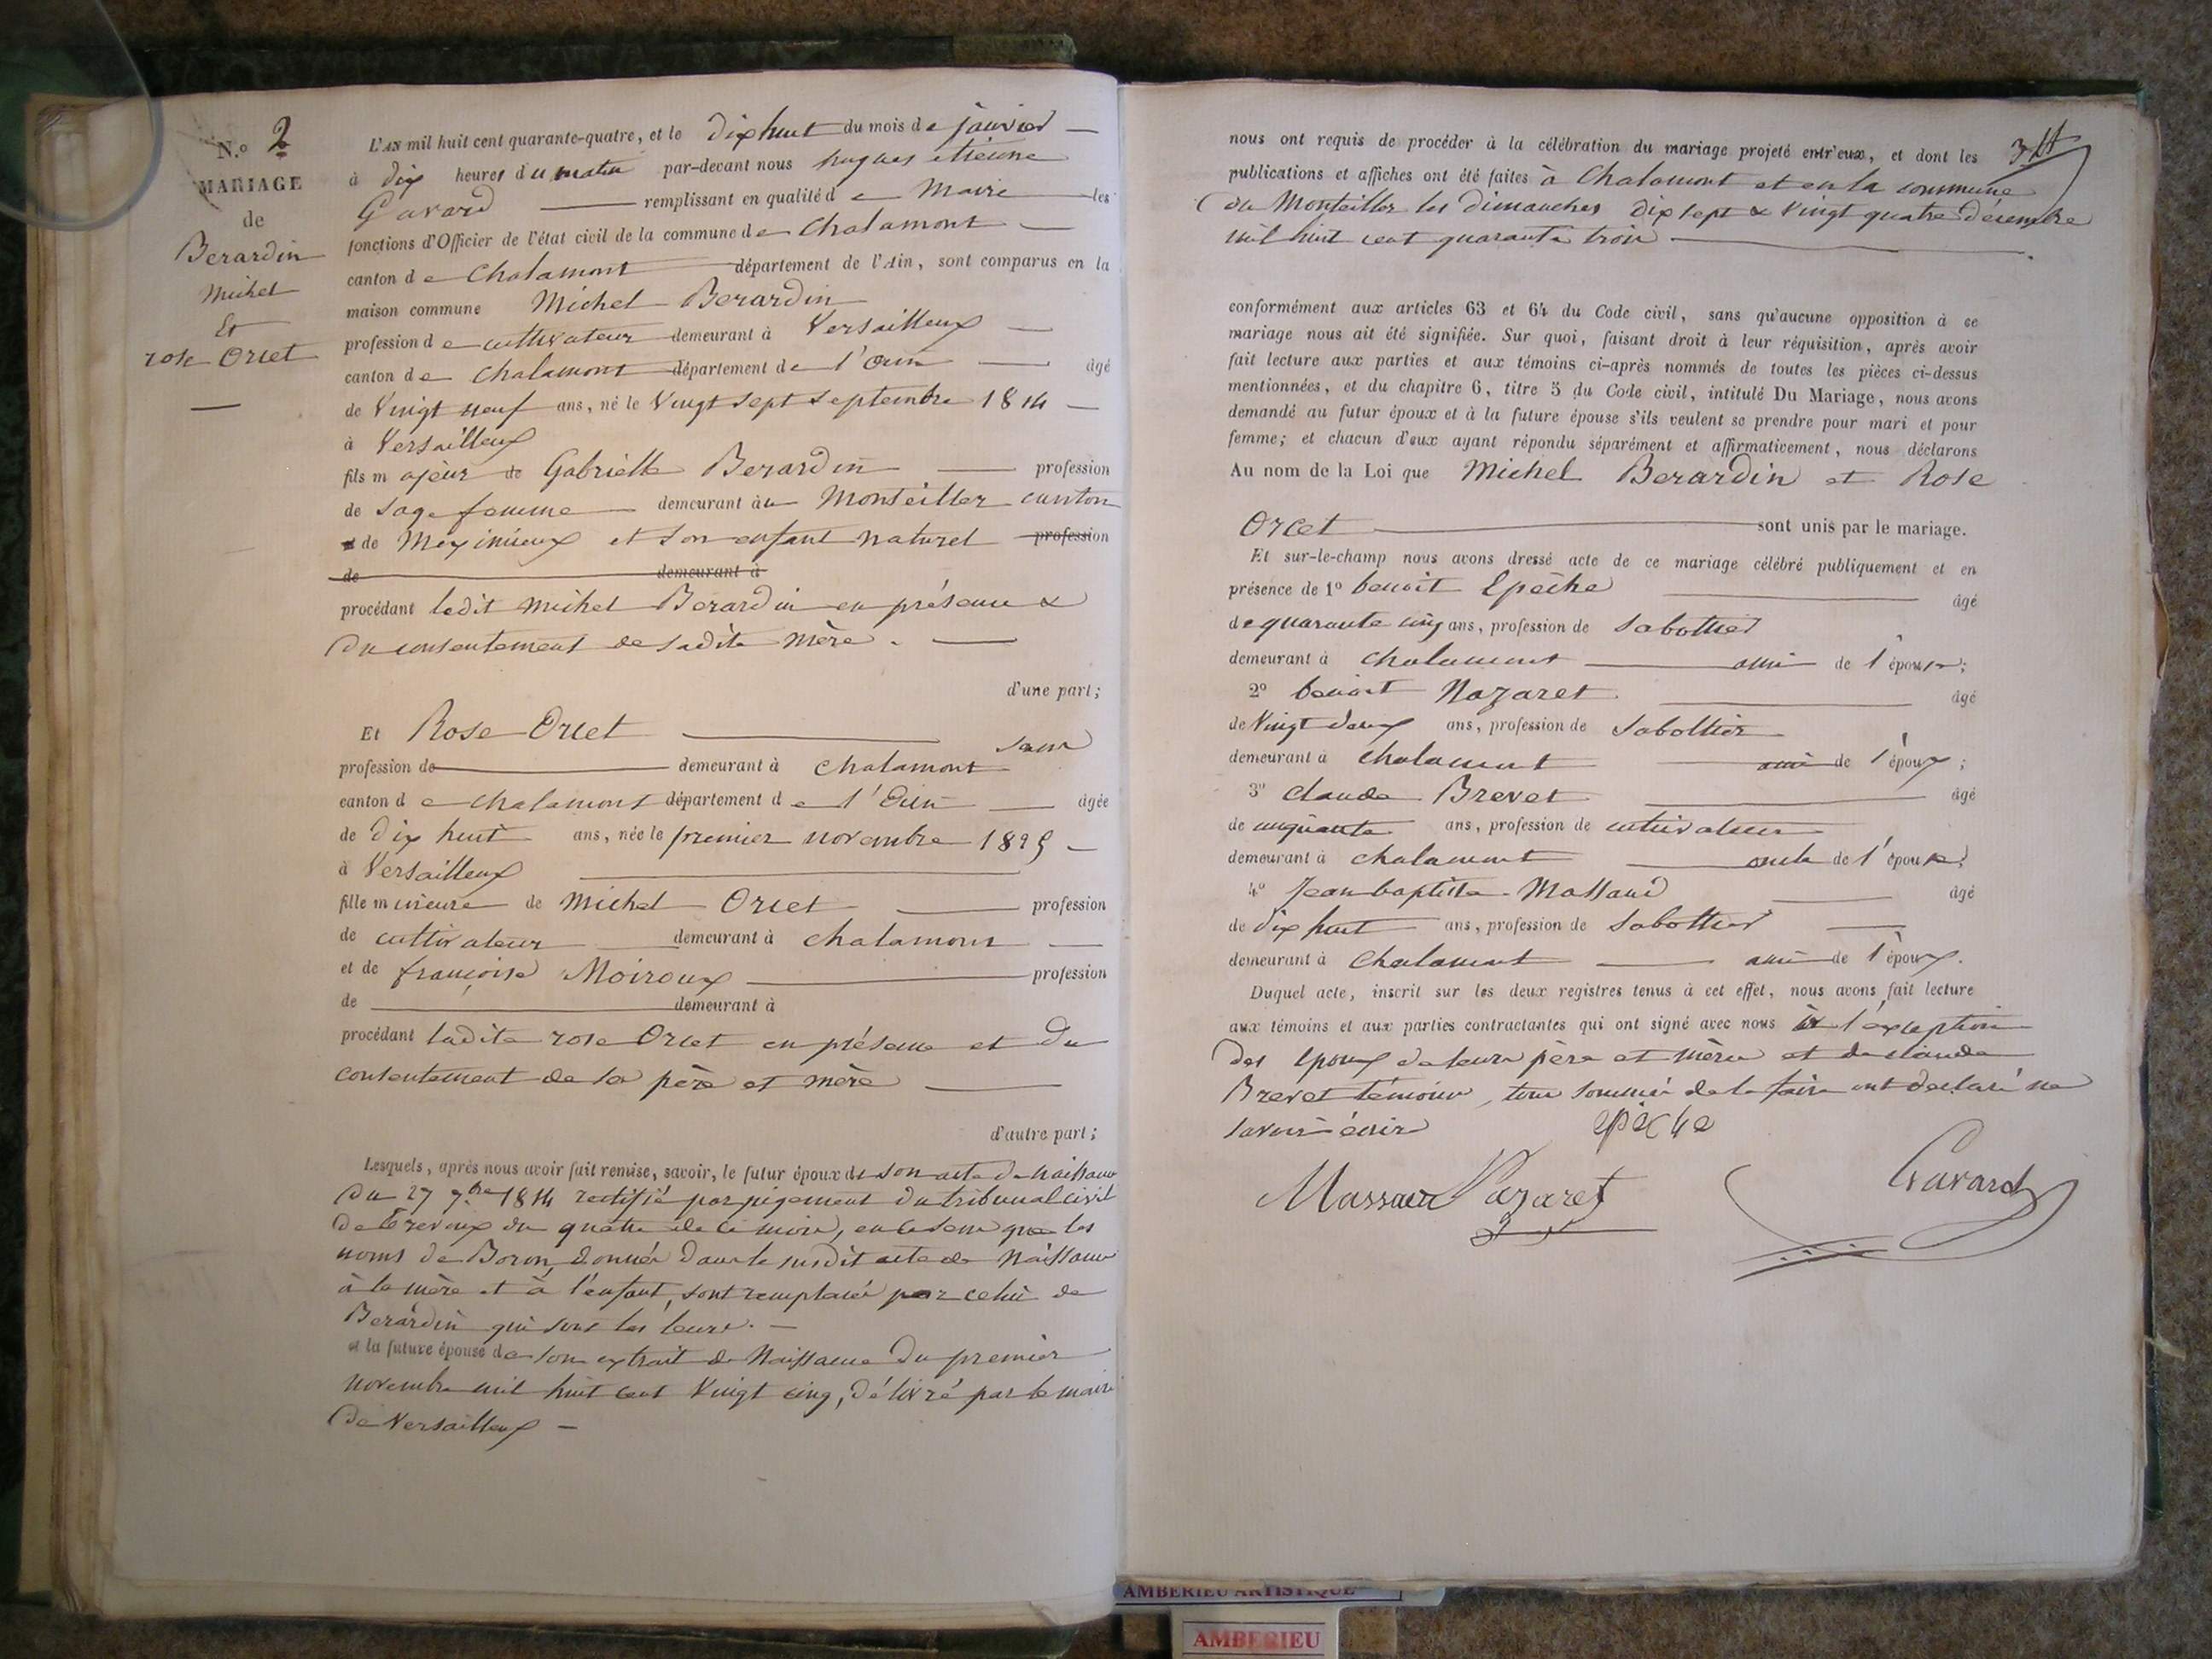 N.o 2
MARIAGE
de
Berardin
Michel
Et
rose Orcet
L'AN mil huit cent quarante-quatre, et le dix huit du mois de janvier
à dix heures du matin par-devant nous hugues etienne
Gavard remplissant en qualité de Maire les
fonctions d'Officier de l'état civil de la commune de Chalamont
canton de Chalamont département de l'Ain, sont comparus en la
maison commune Michel Berardin
profession de cultivateur demeurant à Versailleux
canton de Chalamont département de l'ain âgé
de Vingt neuf ans, né le Vingt sept septembre 1814
à Versailleux
fils majeur de Gabrielle Berardin profession
de sage femme demeurant au Monteiller canton
de Meximieux et son enfant naturel profession
de demeurant à
procédant ledit michel Berardin en présence &
du consentement de sadite mère.
d'une part;
Et Rose Orcet
profession de demeurant à Chalamont
canton de chalamont département de l'ain âgée
de dix huit ans, née le premier novembre 1825
à Versailleux
fille mineure de Michel Orcet profession
de cultivateur demeurant à chalamont
et de françoise Moiroux profession
de demeurant à
procédant ladite rose Orcet en présence et du
consentement de ses père et mère
d'autre part;
Lesquels, après nous avoir fait remise, savoir, le futur époux de son acte de naissance
du 27 7.bre 1814 rectifié par jugement du tribunal civil
de Trevoux du quatre de ce mois, en ce sens que les
noms de Boron, donnés dans le susdit acte de Naissance
à la mère et à l'enfant, sont remplacés par celui de
Berardin qui sont les leurs.
et la future épouse de son extrait de Naissance du premier
novembre mil huit cent vingt cinq, délivré par le maire
de Versailleux
nous ont requis de procéder à la célébration du mariage projeté entr'eux, et dont les
publications et affiches ont été faites à Chalamont et en la commune
du Monteiller les dimanches dix sept & vingt quatre décembre
mil huit cent quarante trois
conformément aux articles 63 et 64 du Code civil, sans qu'aucune opposition à ce
mariage nous ait été signifiée. Sur quoi, faisant droit à leur réquisition, après avoir
fait lecture aux parties et aux témoins ci-après nommés de toutes les pièces ci-dessus
mentionnées, et du chapitre 6, titre 5 du Code civil, intitulé Du Mariage, nous avons
demandé au futur époux et à la future épouse s'ils veulent se prendre pour mari et pour
femme; et chacun d'eux ayant répondu séparément et affirmativement, nous déclarons
Au nom de la Loi que Michel Berardin et Rose
Orcet sont unis par le mariage.
Et sur-le-champ nous avons dressé acte de ce mariage célébré publiquement et en
présence de 1o benoit Epêche âgé
de quarante cinq ans, profession de sabottier
demeurant à chalamont ami de l'époux;
2o benoit Nazaret âgé
de vingt deux ans, profession de sabottier
demeurant à chalamont ami de l'époux;
3o claude Brevet âgé
de cinquante ans, profession de cultivateur
demeurant à chalamont oncle de l'épouse;
4o Jean baptiste Massard âgé
de dix huit ans, profession de sabottier
demeurant à Chalamont ami de l'époux.
Duquel acte, inscrit sur les deux registres tenus à cet effet, nous avons fait lecture
aux témoins et aux parties contractantes qui ont signé avec nous à l'exception
des epoux de leurs père et mère et de claude
Brevet témoins, tous sommés de le faire ont declaré ne
savoir écrire
epèche
Massard Nazaret Gavard
AMBERIEU ARTISTIQUE
AMBERIEU